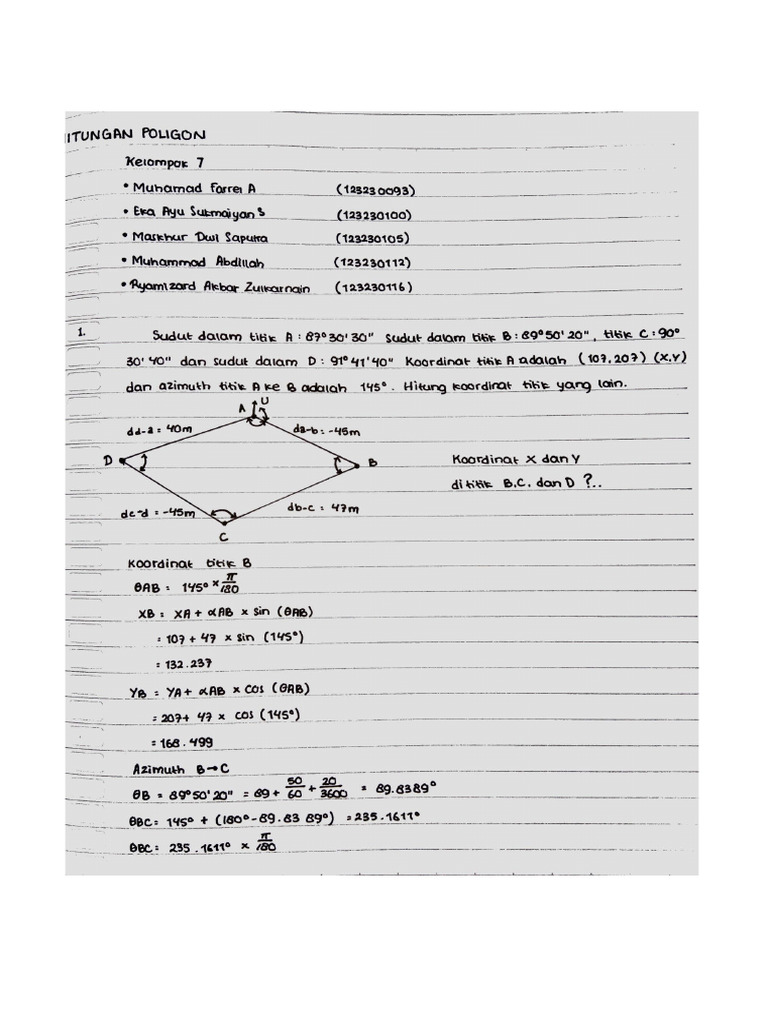 ITUNGAN POLIGON
Kelompok 7
• Muhamad Farrel A (123230093)
• Eka Ayu Sukmaiyan S (123230100)
• Maskhur Dwi Saputra (123230105)
• Muhammad Abdillah (123230112)
• Ryamizard Akbar Zulkarnain (123230116)
1. Sudut dalam titik A : 87°30'30" sudut dalam titik B : 89°50'20", titik C : 90°
30'40" dan sudut dalam D : 91°41'40" Koordinat titik A adalah (107,207) (X,Y)
dan azimuth titik A ke B adalah 145°. Hitung koordinat titik yang lain.
A U
dd-a = 40m da-b = -45m
D B Koordinat X dan Y
di titik B.C. dan D ?..
dc-d = -45m db-c = 47m
C
Koordinat titik B
θAB = 145° × π/180
XB = XA + αAB × sin (θAB)
= 107 + 47 × sin (145°)
= 132.237
YB = YA + αAB × cos (θAB)
= 207 + 47 × cos (145°)
= 168.499
Azimuth B→C
θB = 89°50'20" = 89 + 50/60 + 20/3600 = 89.8389°
θBC = 145° + (180° - 89.83 89°) = 235.1611°
θBC = 235.1611° × π/180